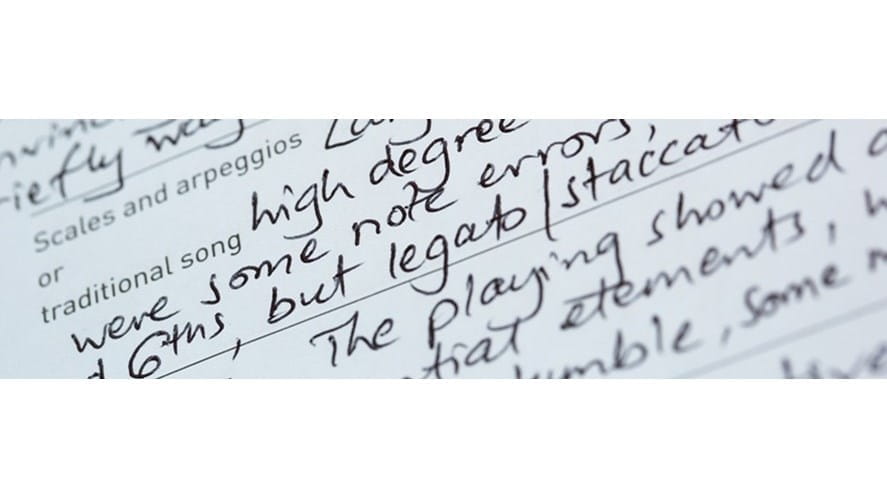 way
Scales and arpeggios
or
traditional song
high degree
were some note errors,
6ths, but legato/staccat
The playing showed
elements,
some